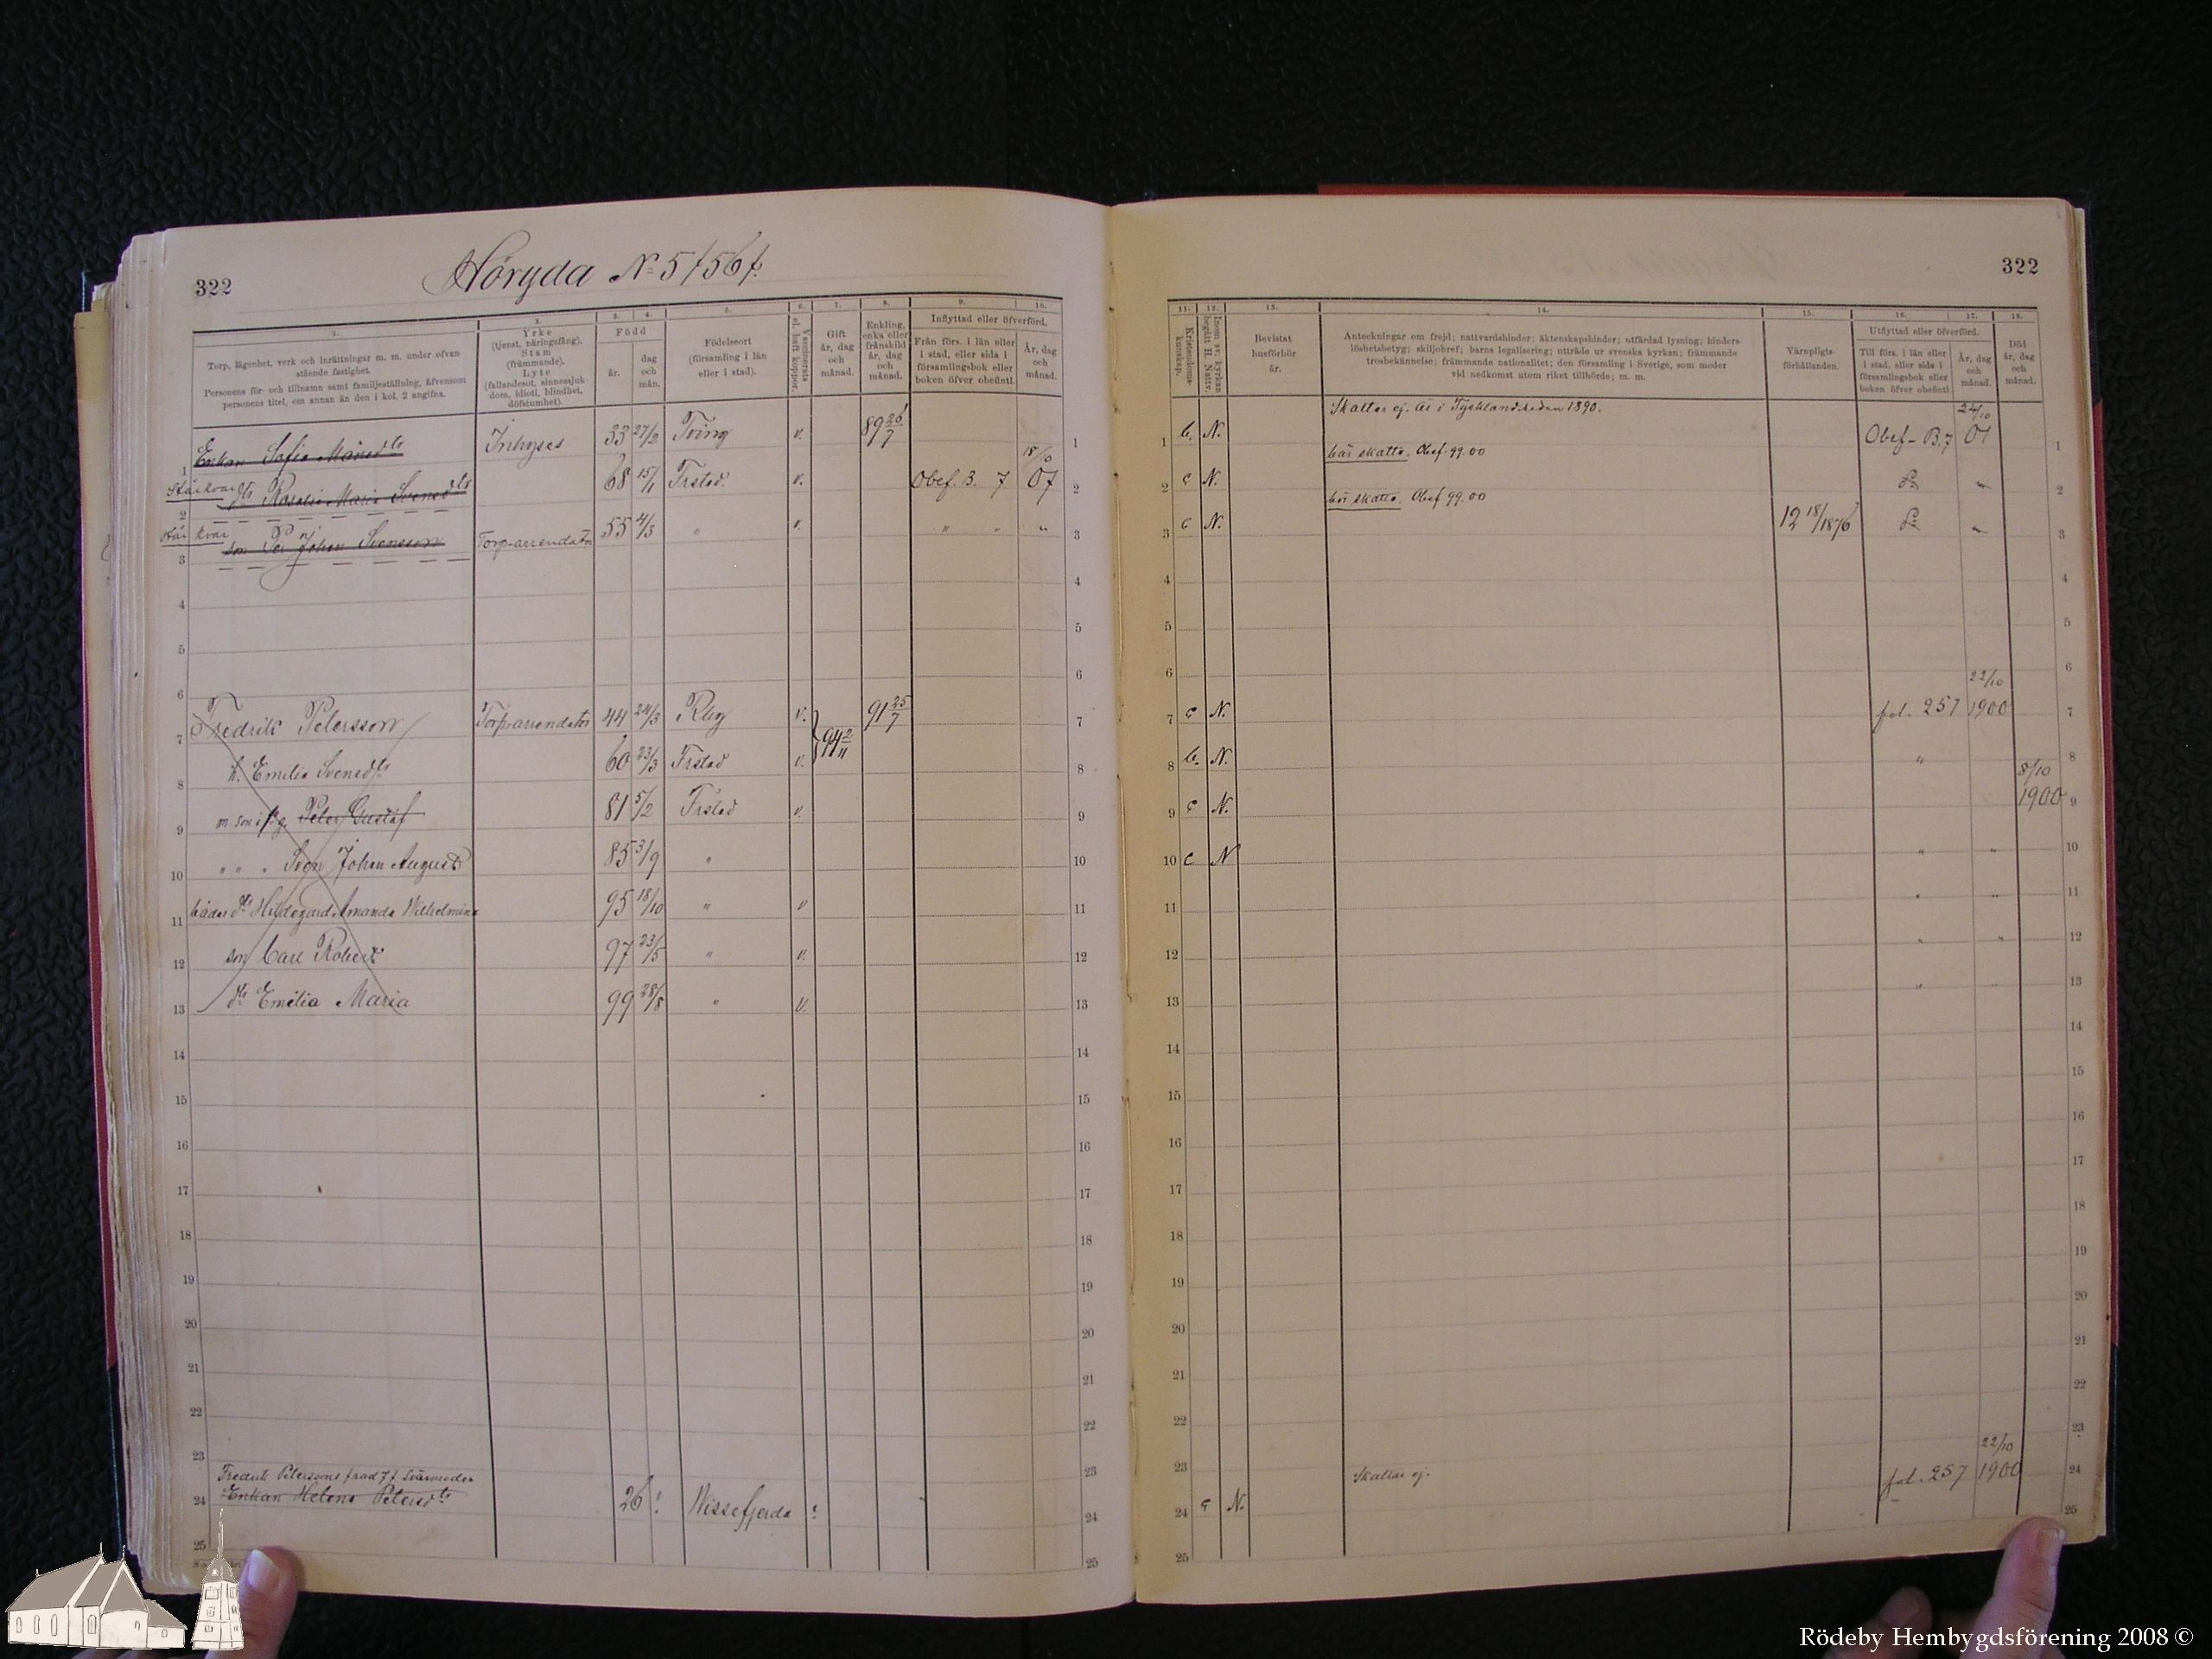 322
Höryda № 5 /56 f.
1. 2. 3. 4. 5. 6. 7. 8. 9. 10.
Torp, lägenhet, verk och inrättningar m. m. under ofvan-
stående fastighet.
Personens för- och tillnamn samt familjeställning, äfvensom
personens titel, om annan än den i kol. 2 angifna.
Yrke
(tjenst, näringsfång).
Stam
(främmande).
Lyte
(fallandesot, sinnessjuk-
dom, idioti, blindhet,
döfstumhet).
Född
år.
dag
och
mån.
Födelseort
(församling i län
eller i stad).
Vaccinerats
el. haft koppor.
Gift
år, dag
och
månad.
Enkling,
enka eller
frånskild
år, dag
och
månad.
Inflyttad eller öfverförd.
Från förs. i län eller
i stad, eller sida i
församlingsbok eller
boken öfver obefintl.
År, dag
och
månad.
1 Enkan Sofia Månsdtr Inhyses 33 27/2 Tving v. 89 26/7 1
2 Står kvar dtr Rosalia Maria Svensdtr 68 15/1 Frstad. v. Obef. B. 7 18/10 07 2
3 står kvar son Per Johan Svensson Torparrendator 55 4/3 " v. " " " 3
4 4
5 5
6 6
7 Fredrik Petersson Torparrendator 44 24/3 Rbg v. 94 2/11 91 25/7 7
8 h. Emilia Svensdtr 60 23/3 Frstad v. 8
9 m son i fg. Peter Gustaf 81 5/2 Frstad v. 9
10 " " " Sven Johan August 85 3/9 " 10
11 bådas dtr Hildegard Amanda Wilhelmina 95 18/10 " v 11
12 son Carl Robert 97 23/5 " v. 12
13 dtr Emilia Maria 99 28/8 " v. 13
14 14
15 15
16 16
17 17
18 18
19 19
20 20
21 21
22 22
23 23
Fredrik Peterssons frad 7 f svärmoder
24 Enkan Helena Petersdtr 26 ? Wissefjerda ? 24
25 25
322
11. 12. 13. 14. 15. 16. 17. 18.
Kristendoms-
kunskap.
Inom sv. kyrkan
begått H. Nattv.
Bevistat
husförhör
år.
Anteckningar om frejd; nattvardshinder; äktenskapshinder; utfärdad lysning; hinders-
löshetsbetyg; skiljobref; barns legalisering; utträde ur svenska kyrkan; främmande
trosbekännelse; främmande nationalitet; den församling i Sverige, som moder
vid nedkomst utom riket tillhörde; m. m.
Värnpligts-
förhållanden.
Utflyttad eller öfverförd.
Till förs. i län eller
i stad, eller sida i
församlingsbok eller
boken öfver obefintl.
År, dag
och
månad.
Död
år, dag
och
månad.
Skattar ej. Är i Tyskland sedan 1890.
1 b. N. Obef- B. 7 24/10 01 1
bör skatta. Obef. 99. 00
2 c N. D:o " 2
bör skatta. Obef 99. 00
3 c N. 12 18/1876 D:o " 3
4 4
5 5
6 6
7 c N. fol. 257 22/10 1900 7
8 b. N. " 8
9 c N. 8/10 1900 9
10 c N " " 10
11 " " 11
12 " " 12
13 " " 13
14 14
15 15
16 16
17 17
18 18
19 19
20 20
21 21
22 22
23 Skattar ej. 23
24 c N. fol. 257 22/10 1900 24
25 25
Rödeby Hembygdsförening 2008 ©